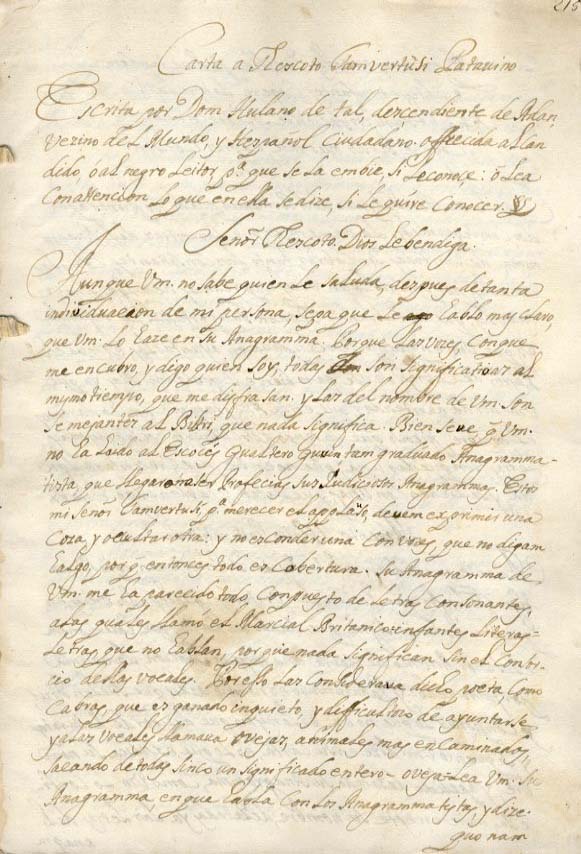 215
Carta a Hescoto Iamvertusi Patavino
Escrita por Dom Hulano de tal, descendiente de Adan,
Vezino del Mundo, y Hespañol Ciudadano. offrecida al Can
dido, ó al negro Leitor, pª. que se la embie, si le conoce: ó lea
Con attencion lo que en ella se dize, si le quire Conocer.
Señor Hescoto. Dios le bendiga.
Aunque Vm. no sabe quien le saluda, despues de tanta
individuacion de mi persona, sepa que le hablo mas claro,
que Vm. lo haze en su Anagramma. Porque las vozes, con que
me encubro, y digo quien soy, todas son significativas al
mysmo tiempo, que me disfrasan: y las del nombre de Vm. son
semejantes al Bitri, que nada significa. Bien se ve, q̃ Vm.
no ha leido al Escoces Gualtero Quvintam graduado Anagramma-
tista, que llegaron a ser Profecias sus Iudiciosos Anagrammas. Estos
mi Señor Iamvertusi, pª. merecer el applauso, devem exprimir una
Coza, y ocultar otra: y no esconder una con vozes, que no digam
ealgo, porq̃ entonces todo es Cobertura. Su Anagramma de
Vm. me ha parecido todo, Conpuesto de letras Consonantes,
a las quales llamó el Marcial Britanico: infantes Literas-
letras que no hablan, porque nada significan sin el Consor-
cio de las vocales. Por esto las Considerava dicho poeta, como
Cabras, que es ganado inquieto, y difficultoso de ayuntarse
y a las vocales llamava ovejas, animales mas encaminados,
sacando de todas sinco un significado entero- oveja. Lea Vm. su
Anagramma en que habla con los Anagrammatistas, y dize
quo nam